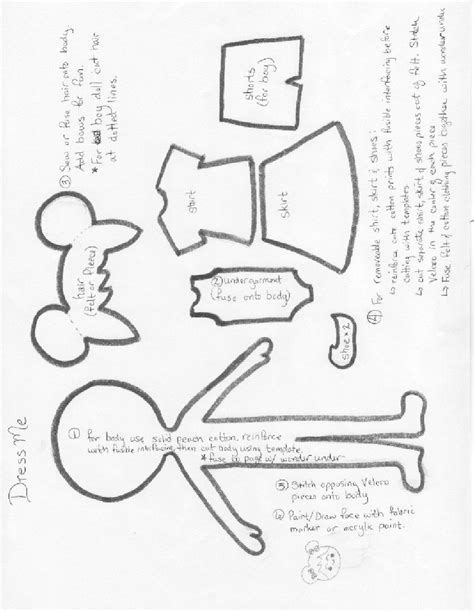 Dress Me
① for body use solid peach cotton, reinforce
with fusible interfacing, then cut body using template.
* fuse to page w/ wonder under
② undergarment
(fuse onto body)
③ Sew or fuse hair onto body
Add bows for fun.
* For boy doll cut hair
at dotted lines.
hair
(felt or fleece)
shirt
skirt
shorts
(for boy)
shoe x 2
④ For removeable shirt, skirt & shoes:
↳ reinforce cute cotton prints with fusible interfacing before
cutting with templates
↳ cut separate shirt, skirt & shoes pieces out of felt. Stitch
Velcro in the center of each piece
↳ Fuse felt & cotton clothing pieces together with wonder under
⑤ Stitch opposing Velcro
pieces onto body
⑥ Paint/Draw face with fabric
marker or acrylic paint.